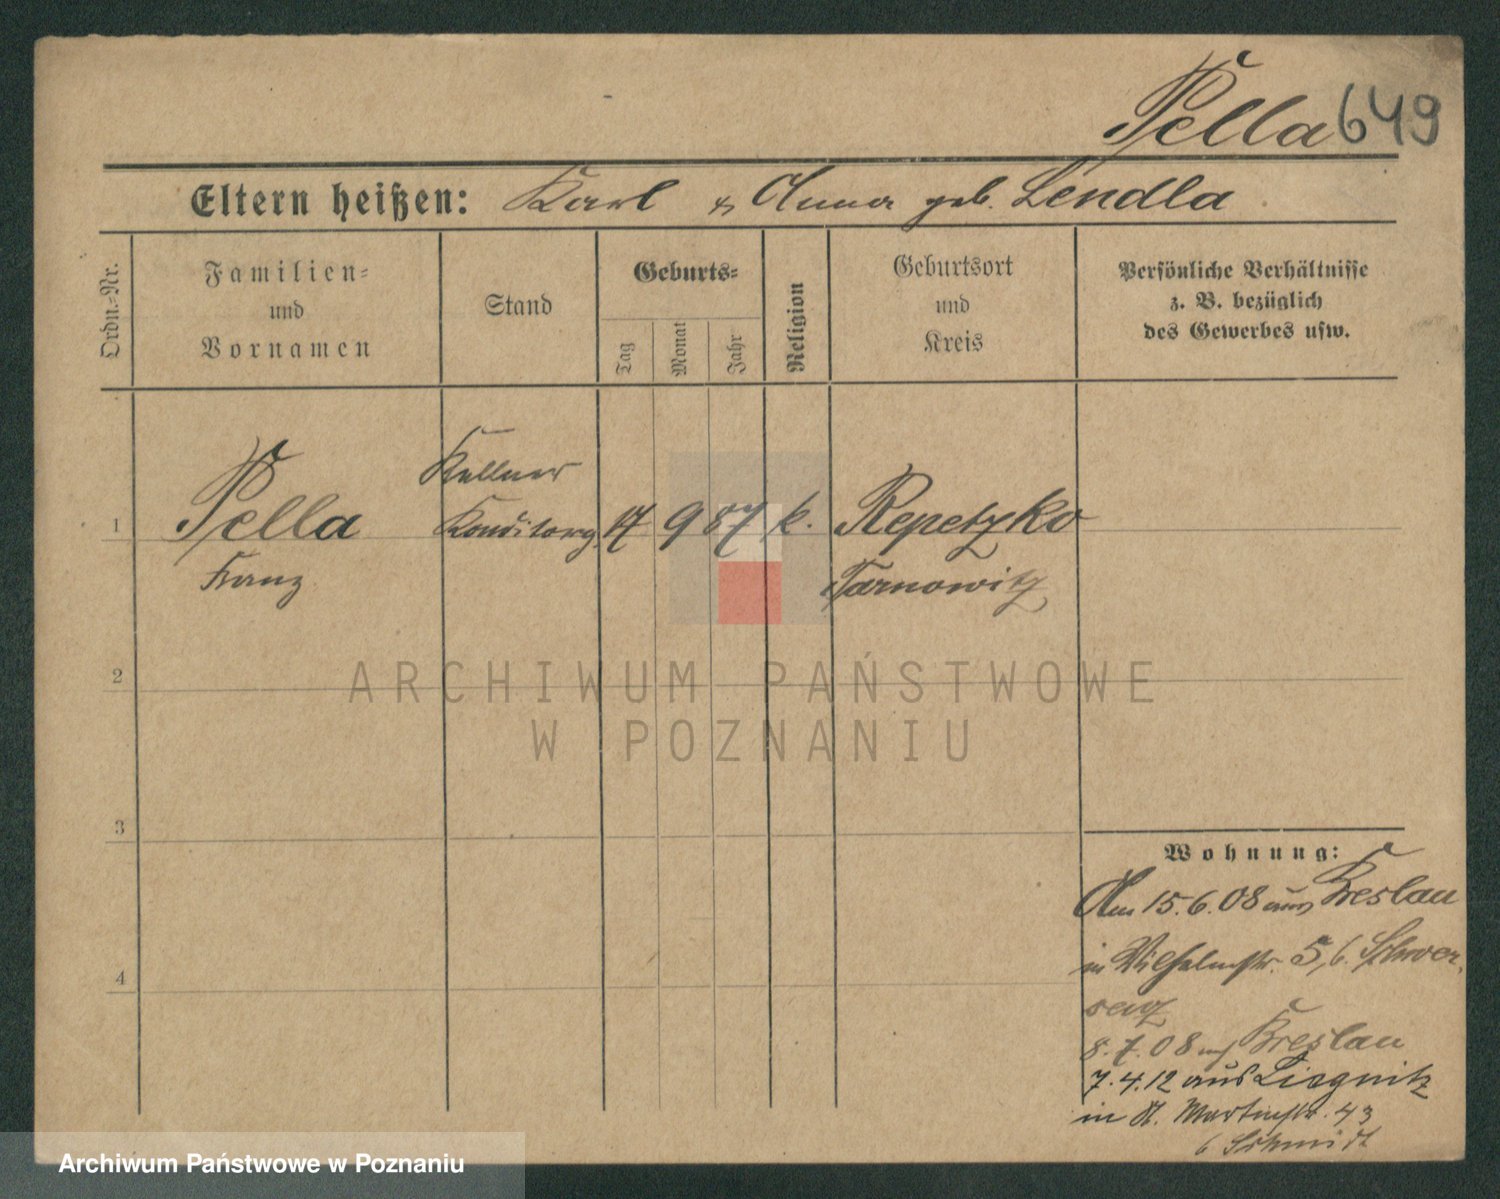 Pella 649
Eltern heißen: Karl & Anna geb. Lendla
Ordn.-Nr.
Familien-
und
Vornamen
Stand
Geburts-
Tag
Monat
Jahr
Religion
Geburtsort
und
Kreis
Persönliche Verhältnisse
z. B. bezüglich
des Gewerbes usw.
Kellner
1 Pella Konditorg. 17 9 87 k. Repetzko
Franz Tarnowitz
2
ARCHIWUM PAŃSTWOWE
W POZNANIU
3
4
Wohnung:
Am 15.6.08 aus Breslau
in Wilhelmstr. 5, b. Schwer-
senz
8.7.08 nach Breslau
7.4.12 aus Liegnitz
in St. Martinstr. 43
b Schmidt
Archiwum Państwowe w Poznaniu